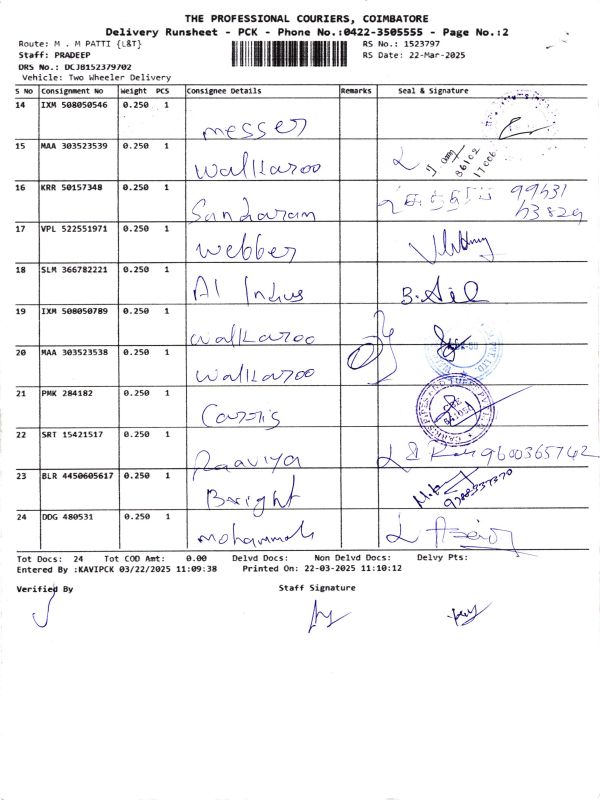 THE PROFESSIONAL COURIERS, COIMBATORE
Delivery Runsheet - PCK - Phone No.:0422-3505555 - Page No.:2
Route: M . M PATTI {L&T}
RS No.: 1523797
Staff: PRADEEP
RS Date: 22-Mar-2025
DRS No.: DCJB152379702
Vehicle: Two Wheeler Delivery
S No Consignment No Weight PCS Consignee Details Remarks Seal & Signature
14 IXM 508050546 0.250 1 messer
15 MAA 303523539 0.250 1 walkaroo 86102 17006
16 KRR 50157348 0.250 1 Sankaran
17 VPL 522551971 0.250 1 webber
18 SLM 366782221 0.250 1 Al Indus
19 IXM 508050789 0.250 1 walkaroo
20 MAA 303523538 0.250 1 walkaroo
21 PMK 284182 0.250 1
22 SRT 15421517 0.250 1 Raaviya 9600365742
23 BLR 4450605617 0.250 1 Bright
24 DDG 480531 0.250 1
Tot Docs: 24 Tot COD Amt: 0.00 Delvd Docs: Non Delvd Docs: Delvy Pts:
Entered By :KAVIPCK 03/22/2025 11:09:38 Printed On: 22-03-2025 11:10:12
Verified By
Staff Signature